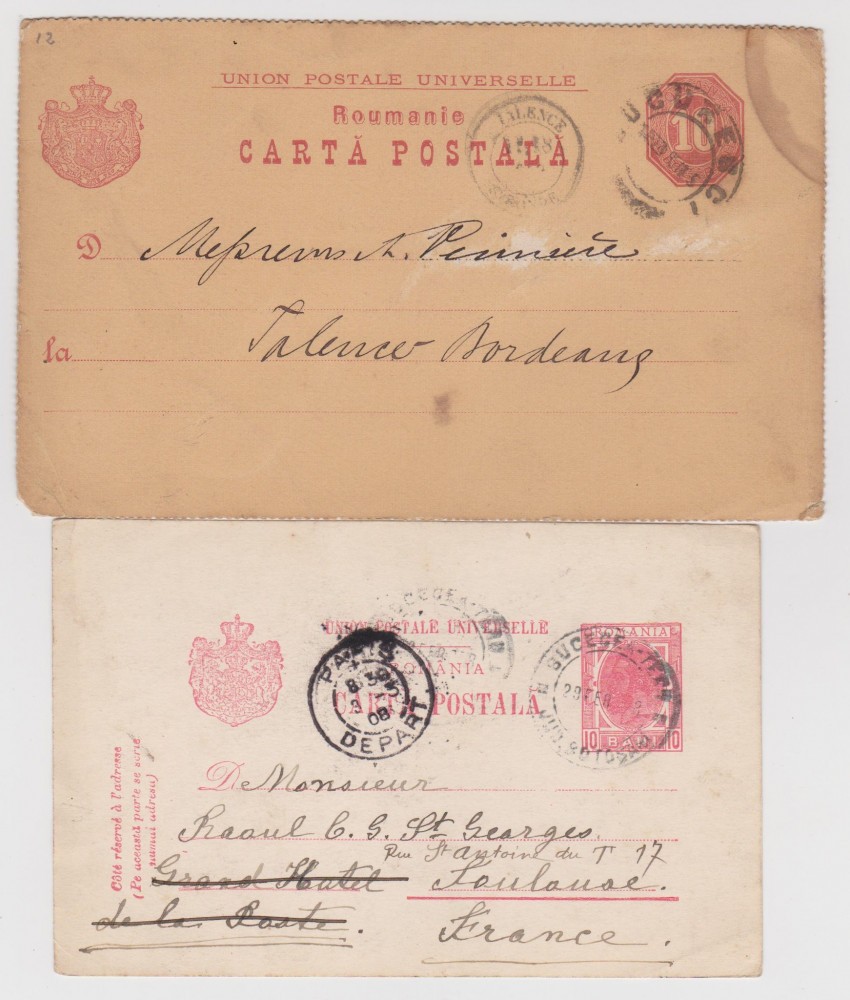 12
UNION POSTALE UNIVERSELLE
Roumanie
CARTĂ POSTALĂ
10
BUCURESCI
TALENCE
18
GIRONDE
D Messrems A. Peinnière
la Talence Bordeaux
UNION POSTALE UNIVERSELLE
ROMÂNIA
CARTĂ POSTALĂ
ROMANIA
10 BANI 10
SUCEVEA
29 FEB
PARIS
8 30
3
08
DEPART
Côté réservé à l'adresse
(Pe această parte se scrie
numai adresa)
D
Monsieur
Raoul C. G. St Georges.
Rue St Antoine du T 17
Grand Hotel Toulouse.
de la Poste. France.